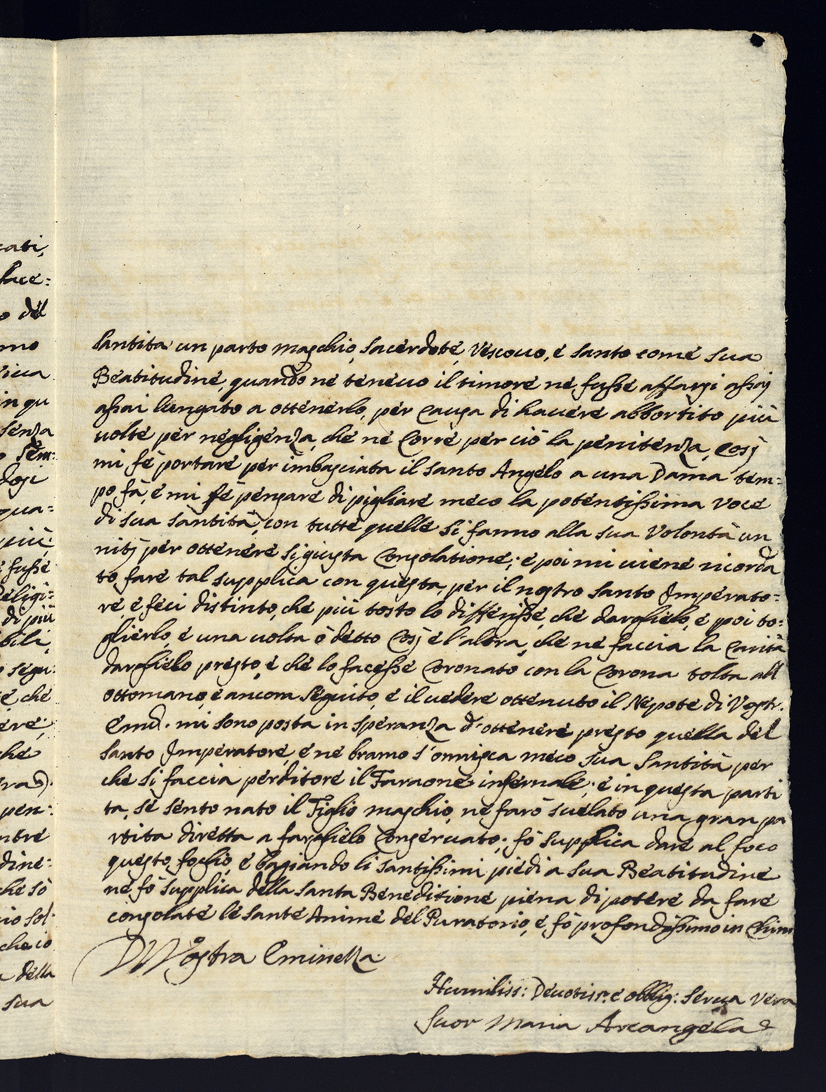 cati,
face:
o del
in qu
senza
o sem:
qua=
più
e fusse
religi=
di più
bili,
o segu:
e, che
ere:
che
pen:
ntre
dine:
he so
io sol:
che io
a della
sua
Santita un parto maschio, sacerdote, Vescouo, e santo come sua
Beatitudine, quando ne teneuo il timore ne fusse affarsi assaj
assai lungato a ottenerlo, per causa di hauere abbortito più
uolte per negligenza, che ne Corre per ciò la penitenza, cosij
mi fe portare per imbasciata il santo Angelo a una Dama tem-
po fà, e mi fe pensare di pigliare meco la potentissima Voce
di sua santità, con tutte quelle si fanno alla sua Volontà un
nitij per ottenere si giusta Consolatione; e poi mi uiene ricorda
to fare tal supplica con questa, per il nostro santo Imperato=
re, e feci distinto, che più tosto lo differisse, che darglielo, e poi to=
glierlo, e una uolta ò detto Cosj e l'altra, che ne faccia la Carità
darglielo presto, e che lo facesse Coronato con la Corona tolta all
ottomano, e ancora seguito, e il uedere ottenuto il Nepote di Vostr.
Emz. mi sono posta in speranza d'ottenere presto quella del
santo Imperatore, e ne bramo s'onnisca meco sua Santità per
che si faccia perditore il Faraone infernale. e in questa parti
ta, se sento nato il Figlio maschio, ne farò suelato una gran pa
rtita diretta a farglielo Conseruato; fò supplica dare al foco
questo foglio, e bagiando li santissimi piedi a sua Beatitudine
ne fò supplica della santa Beneditione piena di potere da fare
consolate le sante Anime del Puratorio, e fò profondissimo in Chin
D Vostra Eminenza
Humiliss: Deuotiss: e obblig: serua Vera
Suor Maria Arcangela